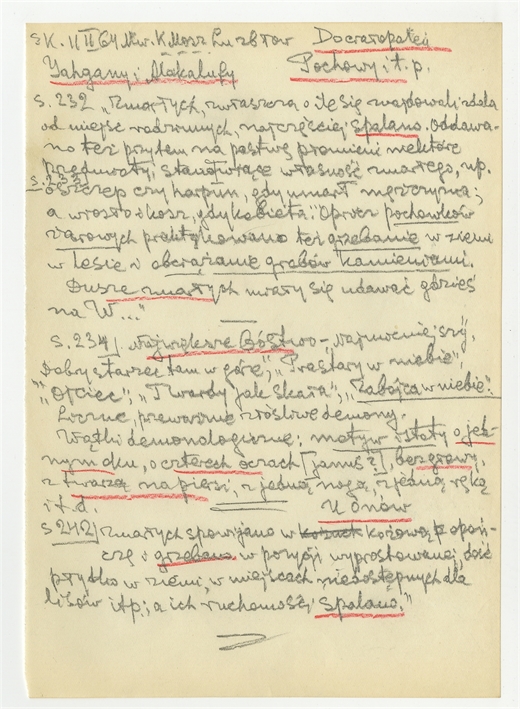 SK. 11 II 64 Mw. K. Mosz Docratopatej
Yahgany i Alakalufy Pochowy i t. p.
s. 232 „Zmarłych, zwłaszcza o ile się znajdowali zdala
od miejsc rodzinnych, najczęściej spalano. Oddawa-
no też przytem na pastwę płomieni niektóre
przedmioty, stanowiące własność zmarłego, np.
s. 233
oszczep czy harpun, gdy umarł mężczyzna;
a wiosło i kosz, gdy kobieta. Oprócz pochówków
żarowych praktykowano też grzebanie w ziemi
w lesie i obciążanie grobów kamieniami.
Dusze zmarłych miały się udawać gdzieś
na W..."
s. 234/. Największe Bóstwo - „Najmocniejszy",
„Dobry starzec tam w górze", „Prastary w niebie",
„Ojciec", „Twardy jak skała", „Zabójca w niebie".
Liczne, przeważnie złośliwe demony.
Wątki demonologiczne: motyw istoty o jed-
nym oku, o czterech oczach [janus?], bezgłowy,
z twarzą na piersi, z jedną nogą, z jedną ręką
i t. d. U Onów
s 242/ Zmarłych spowijano w kożuch kożową opoń-
czę i grzebano w pozycji wyprostowanej, dość
płytko w ziemi, w miejscach niedostępnych dla
lisów itp; a ich ruchomości spalano."